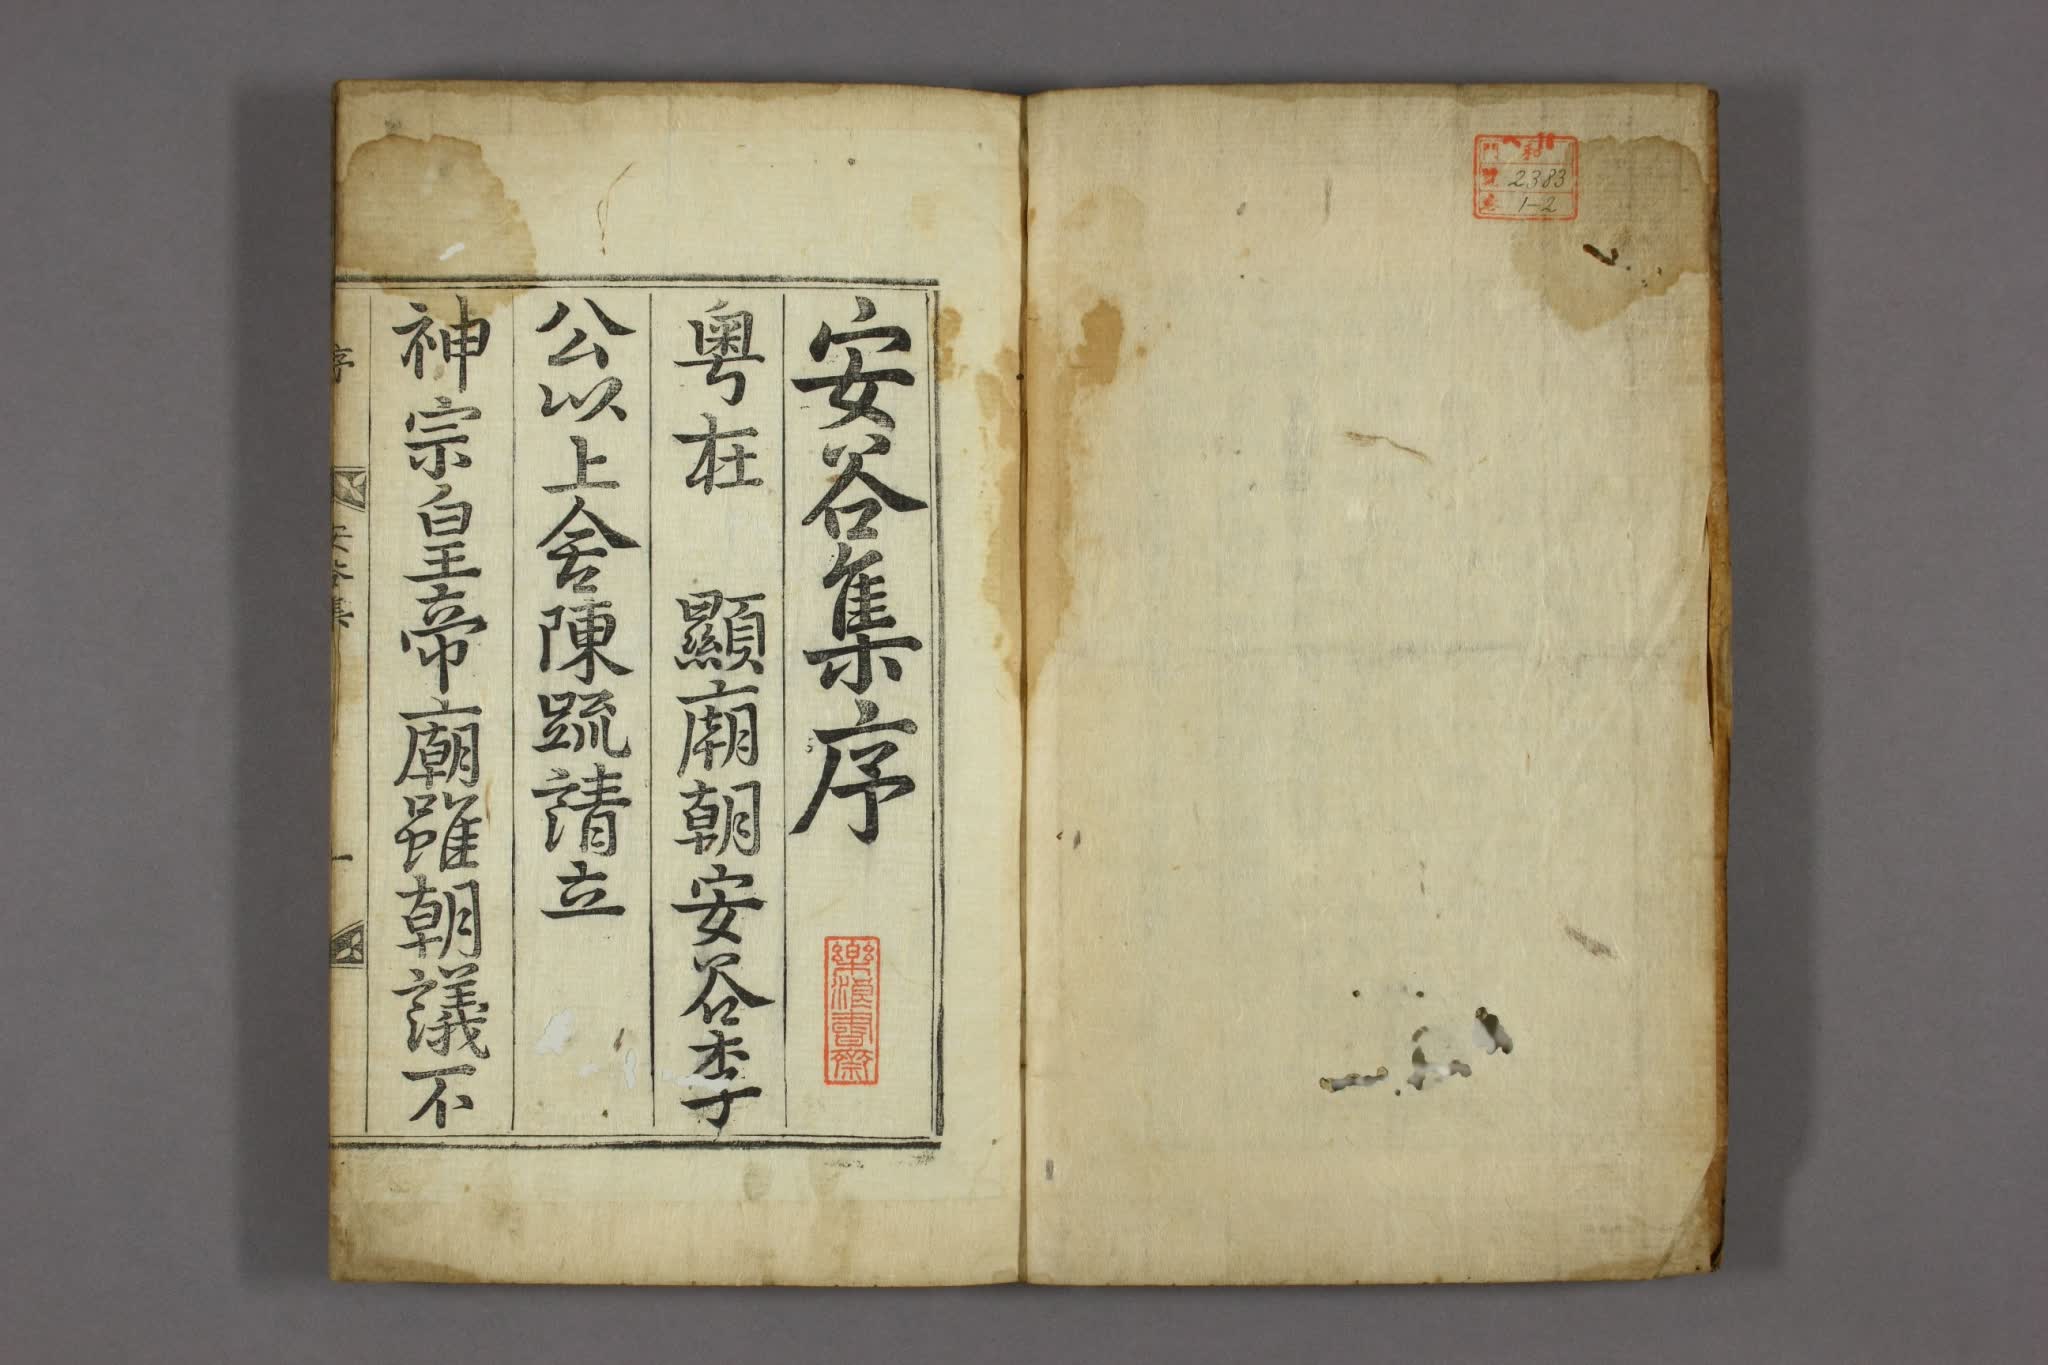 門 和
2383
1-2
安谷集序
樂浪書齋
粤在 顯廟朝安谷李
公以上舍陳疏請立
神宗皇帝廟雖朝議不
序 安谷集 一